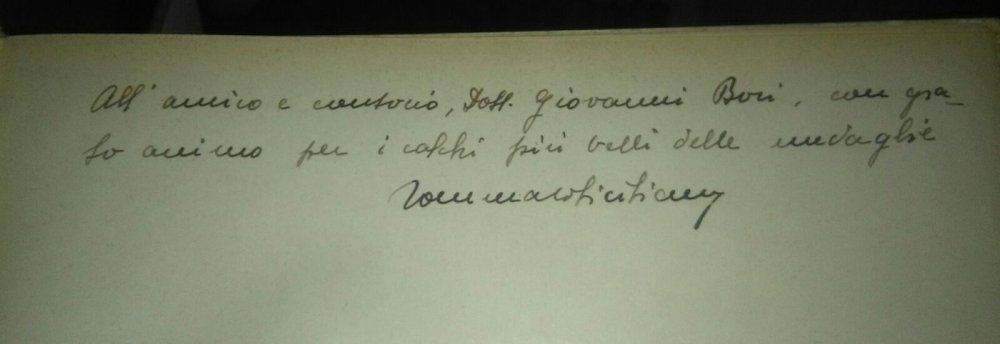 All' amico e consocio, Dott. Giovanni Bori, con gra-
to animo per i calchi più belli delle medaglie